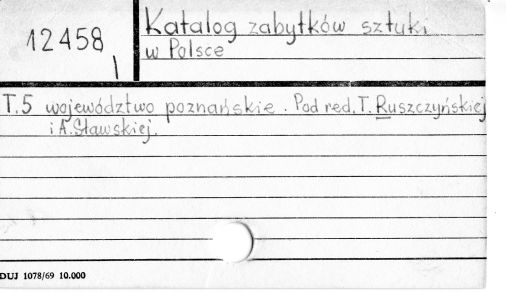 12458
Katalog zabytków sztuki
w Polsce
T.5 województwo poznańskie. Pod red. T. Ruszczyńskiej
i A. Sławskiej.
DUJ 1078/69 10.000